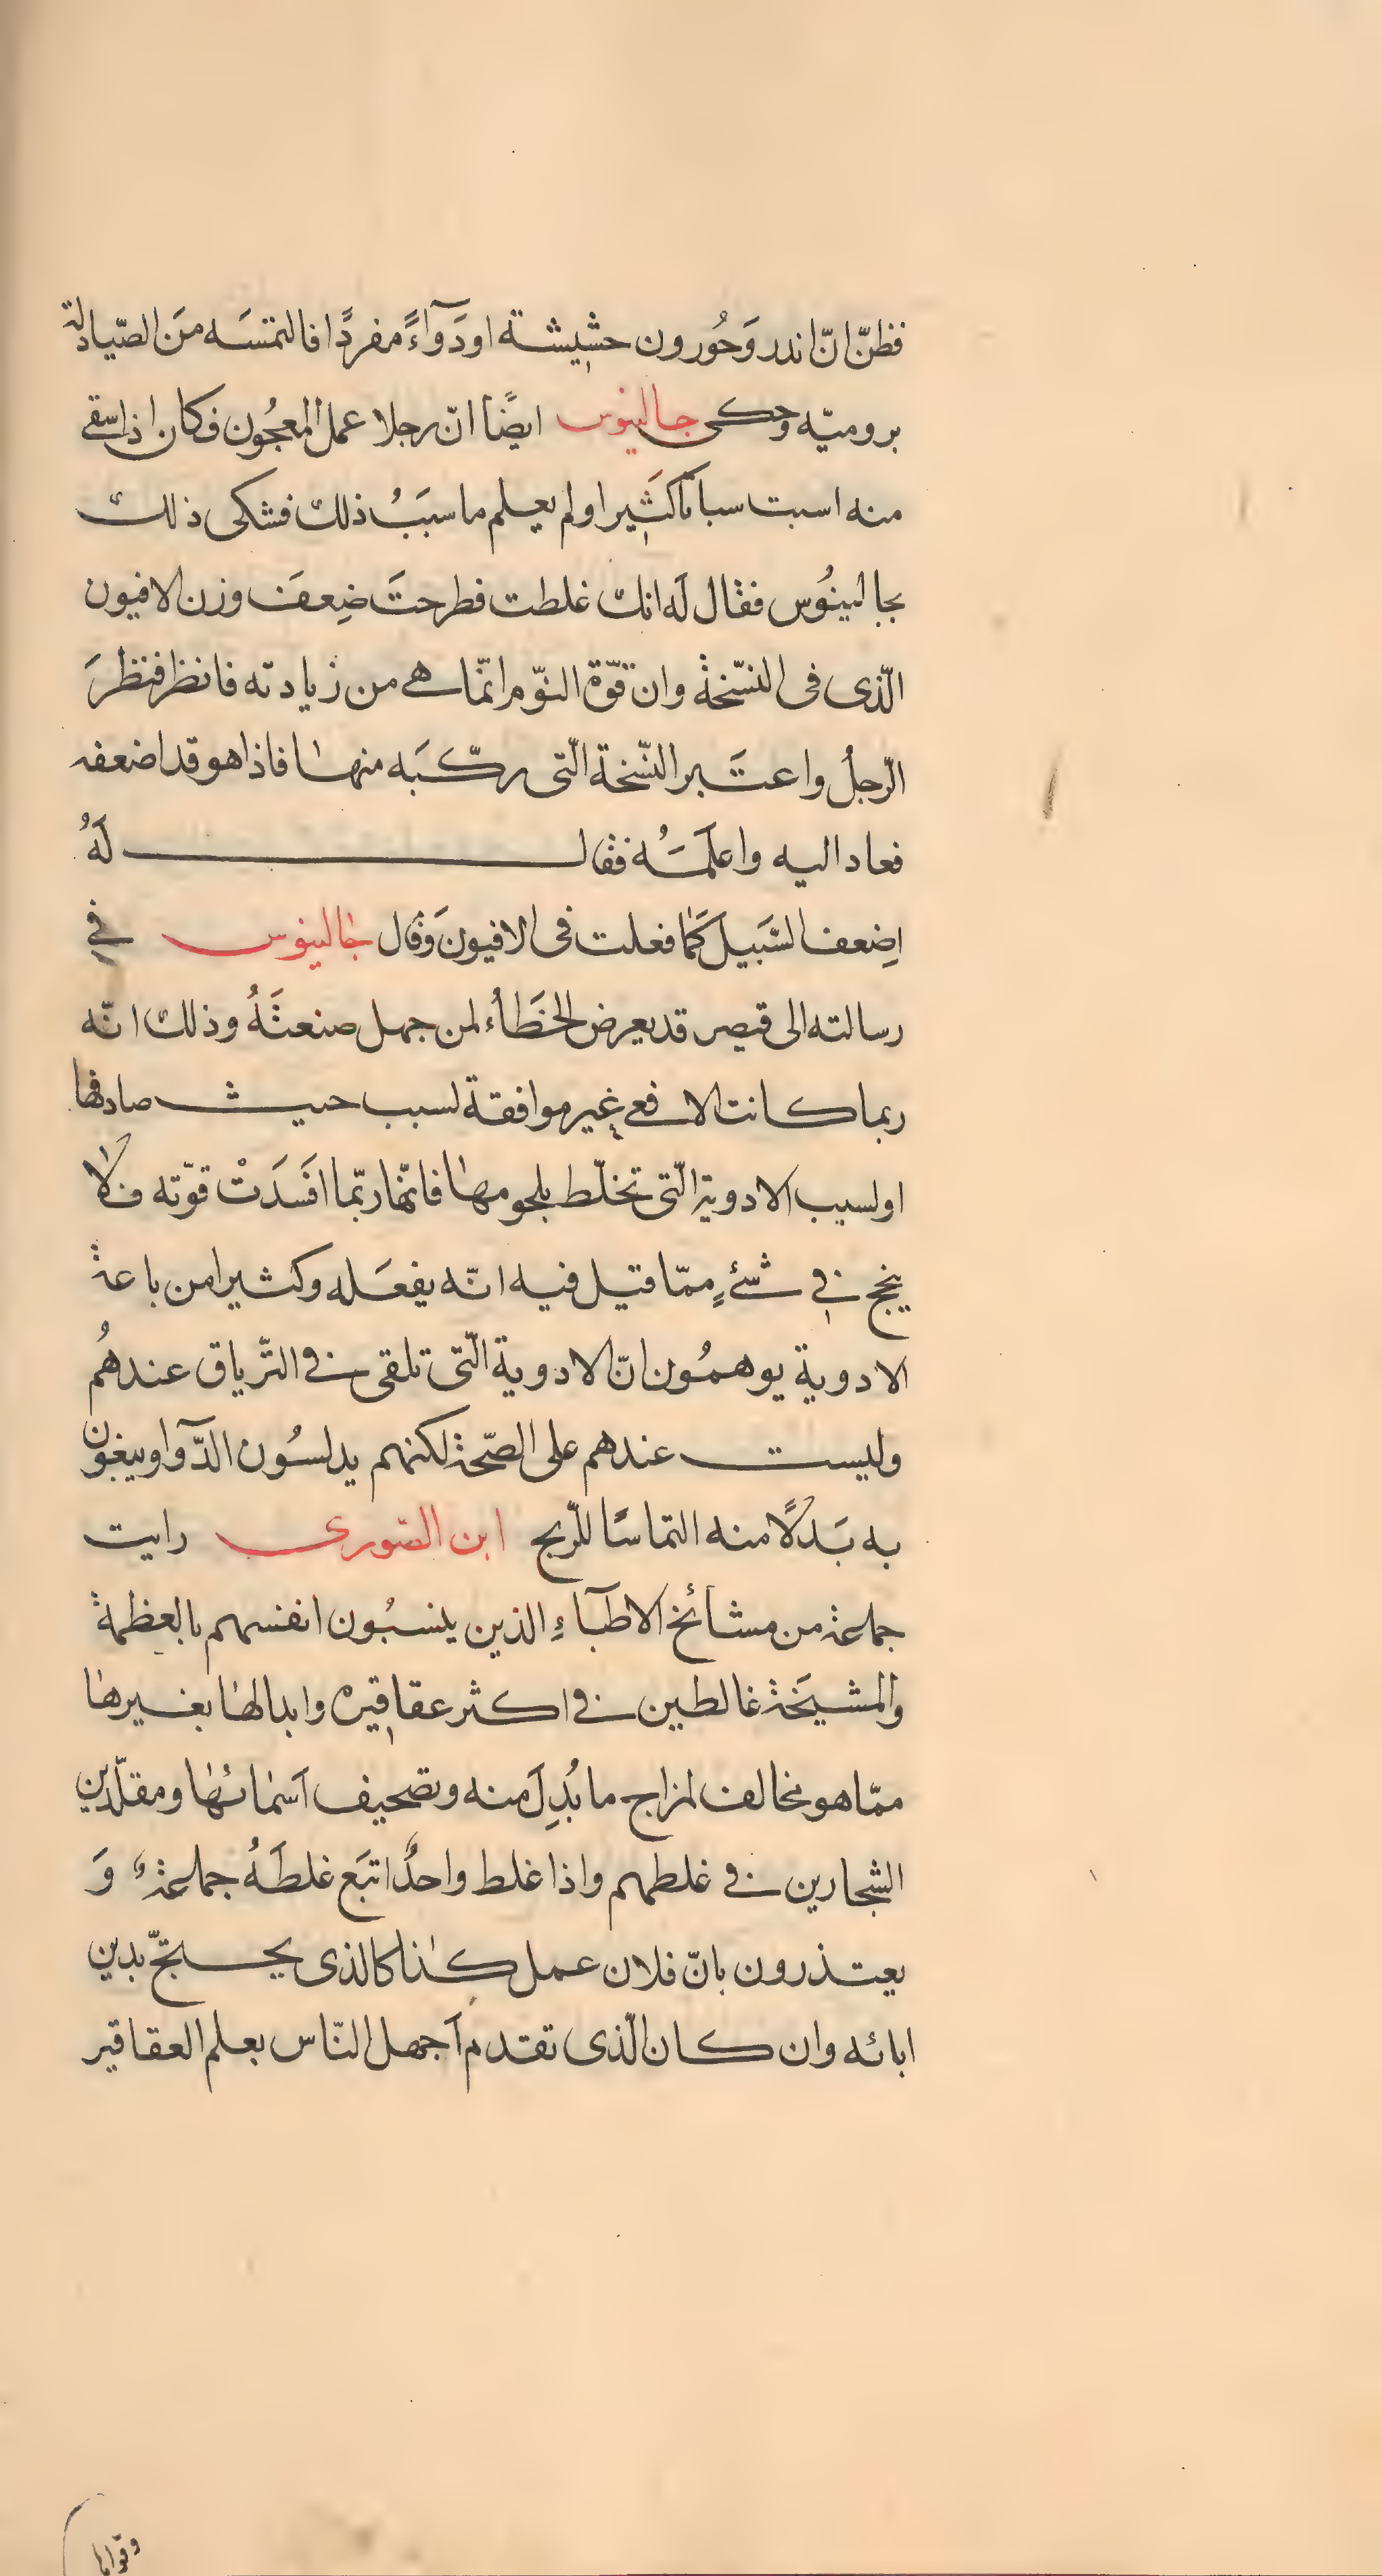 فظنّ انّ اندروَحُورون حشيشة اودَوآءً مفردًا فالتمسَه منَ الصّيادلة
بروميّه وحكى جالينوس ايضًا انّ رجلا عمل المعجُون فكان اذا سقى
منه اسبت سباتا كثيرا ولم يعلم ما سبَبُ ذلك فشكى ذلك
بجالينُوس فقال لَه انك غلطت فطرحتَ ضِعفَ وزن الافيون
الّذى فى النسّخة وان قوّة النوّم انمّا هى من زيادته فانظر فنظرَ
الرّجلُ واعتَبر النّسخة الّتى ركّبَه منها فاذا هو قد اضعفه
فعاد اليه واعلَمَُه فقال لَهُ
اضِعف السَّبيل كَما فعلت فى الافيونَ وَقال جالينوس في
رسالته الى قيصر قد يعرض الخَطأُ لمن جهل صنعتَهُ وذلك انّه
ربما كانت الافعى غير موافقة لسبب حيث صادفها
او لسبب الادوية الّتى تخلّط بلحومها فانّها ربّما افَسَدَتْ قوّته فلا
ينجح في شئٍ ممّا قيل فيه انّه يفعَله وكثيرا من باعة
الادوية يوهمُون انّ الادوية الّتى تلقى في التّرياق عندهُم
وليست عندهم على الصّحة لكنهم يدلسُون الدّوآ ويبغون
به بَدلًا منه التماسًا للرّبح ابن الصّورى رايت
جماعة من مشائخ الاطبآءِ الذين ينسبُون انفسهم بالعظمة
والمشيخَة غالطين في اكثر عقاقيره وابدالها بغيرها
ممّا هو مخالف لمزاج ما بُدِلَ منه وتصحيف اَسمائها ومقلّدين
الشجارين في غلطهم واذا غلط واحدٌ اتبَع غلطَهُ جماعةٌ وَ
يعتذرون بانّ فلان عمل كذا كالذى يحتجّ بدين
ابائه وان كان الّذى تقدم اَجهل النّاس بعلم العقاقير
وقواها